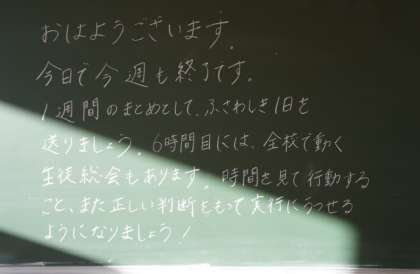 おはようございます。
今日で今週も終了です。
1週間のまとめとして、ふさわしき1日を
送りましょう。6時間目には、全校で動く
生徒総会もあります。時間を見て行動する
こと、また正しい判断をもって実行にうつせる
ようになりましょう！